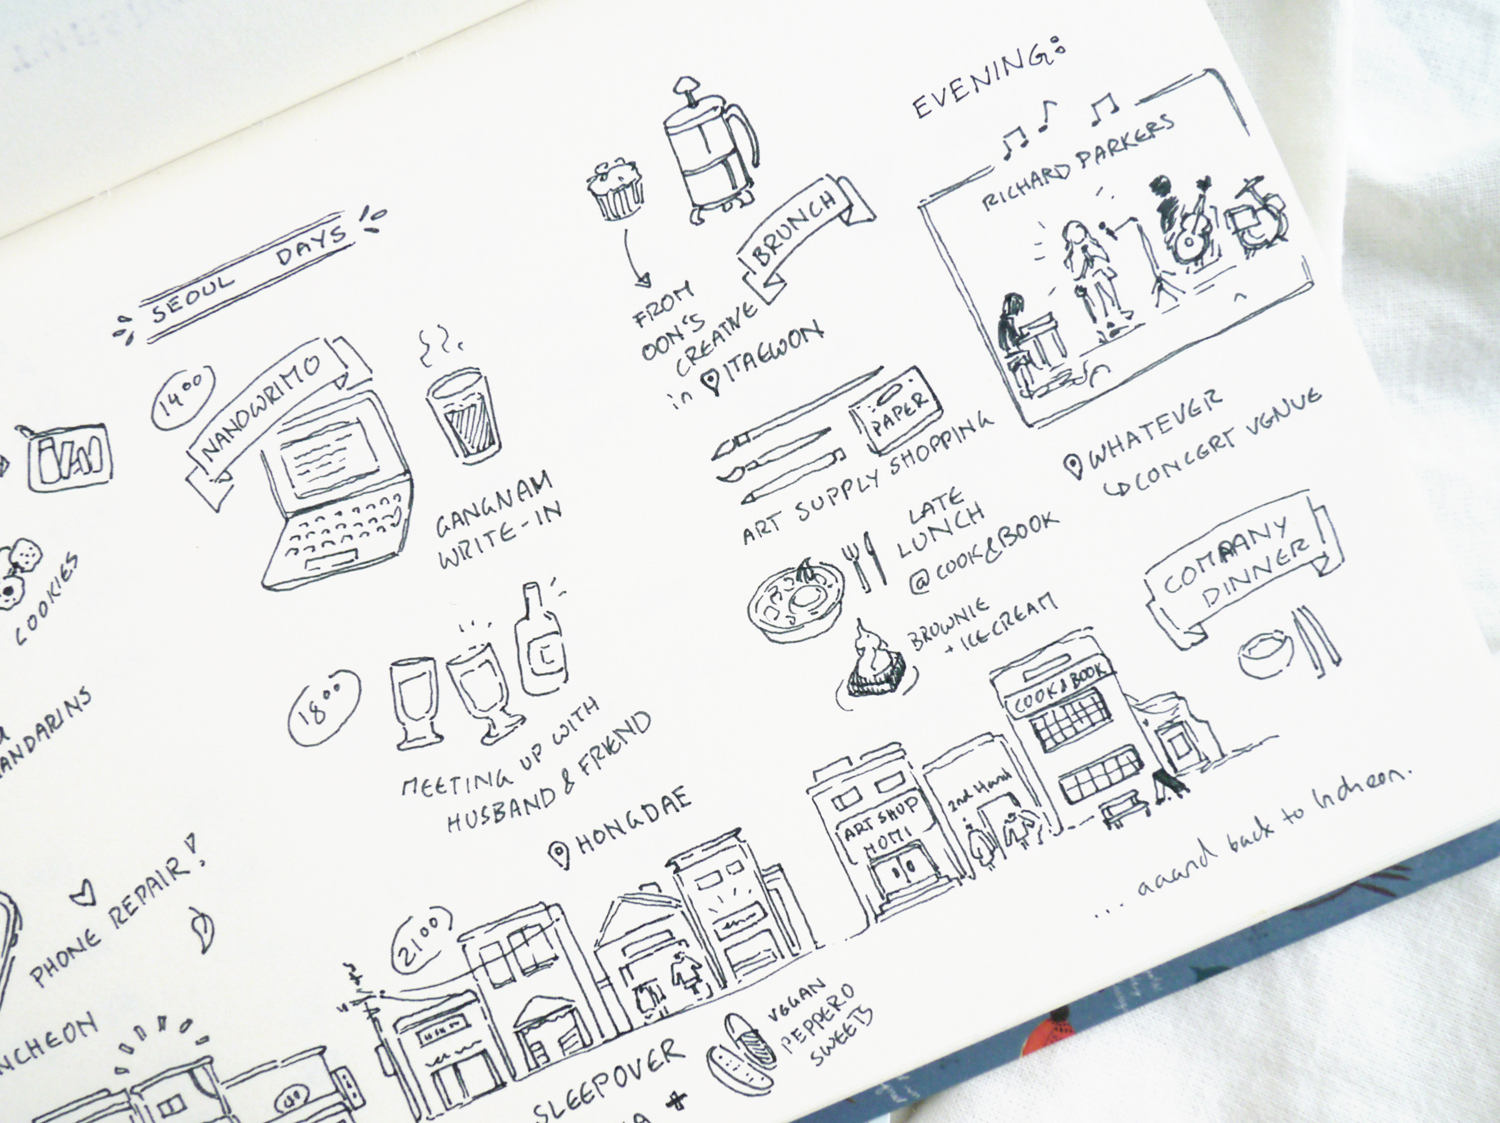 COOKIES
MANDARINS
PHONE REPAIR!
INCHEON
SEOUL DAYS
14:00
NANOWRIMO
GANGNAM
WRITE-IN
18:00
MEETING UP WITH
HUSBAND & FRIEND
HONGDAE
21:00
SLEEPOVER
+
VEGAN
PEPPERO
SWEETS
BRUNCH
FROM
OON'S
CREATIVE
in ITAEWON
PAPER
ART SUPPLY SHOPPING
LATE
LUNCH
@COOK&BOOK
BROWNIE
+ ICECREAM
COOK&BOOK
2nd Hand
ART SHOP
HOMI
EVENING:
RICHARD PARKERS
WHATEVER
↳CONCERT VENUE
COMPANY
DINNER
... aaand back to Incheon.